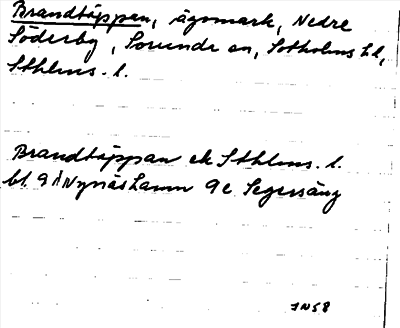 Brandtäppan, ägomark, Nedre
Söderby, Sorunda sn, Sotholms hd,
Sthlms. l.
Brandtäppan ek Sthlms. l.
bl. 9 I Nynäshamn 9 e Segersäng
JN58